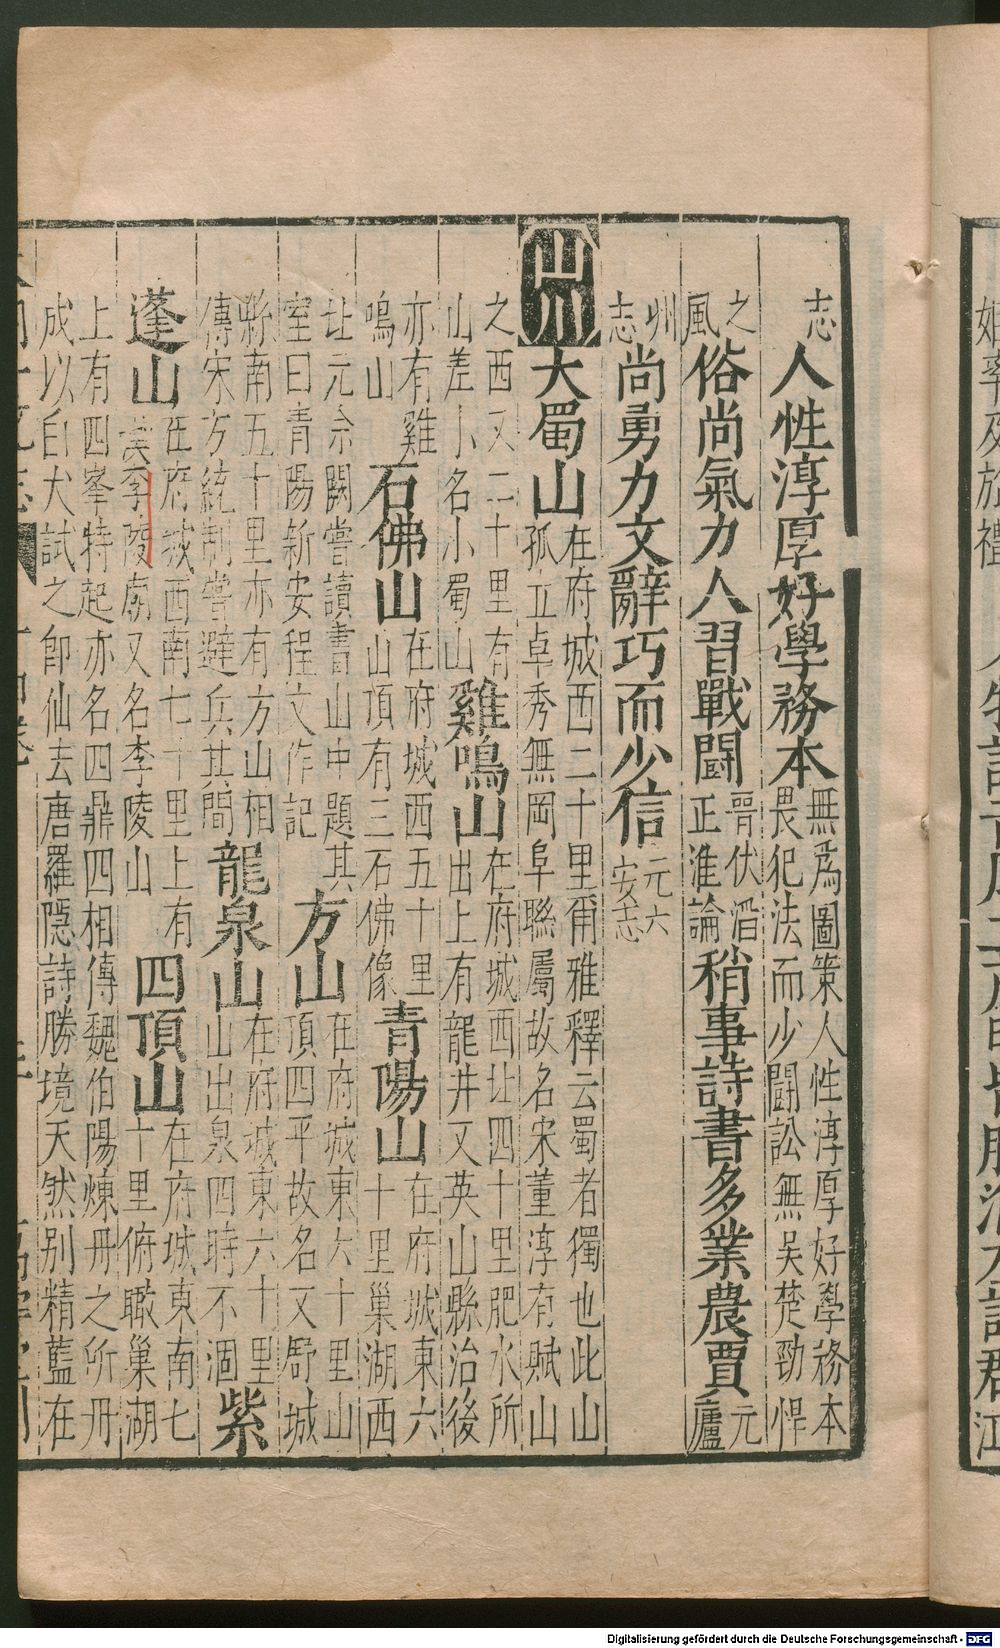 志人性淳厚好學務本無爲圖策人性淳厚好學務本畏犯法而少闘訟無吳楚勁悍
之風俗尚氣力人習戰闘晉伏滔正淮論稍事詩書多業農賈元廬
州志尚勇力文辭巧而少信元六安志
山川大蜀山在府城西二十里爾雅釋云蜀者獨也此山孤立卓秀無岡阜聯屬故名宋董淳有賦山
之西又二十里有山差小名小蜀山雞鳴山在府城西北四十里肥水所出上有龍井又英山縣治後
亦有雞鳴山石佛山在府城西五十里山頂有三石佛像青陽山在府城東六十里巢湖西
北元余闕嘗讀書山中題其室曰青陽新安程文作記方山在府城東六十里山頂四平故名又舒城
縣南五十里亦有方山相傳宋方統制嘗避兵其間龍泉山在府城東六十里山出泉四時不涸紫
蓬山在府城西南七十里上有漢李陵廟又名李陵山四頂山在府城東南七十里俯瞰巢湖
上有四峯特起亦名四鼎四相傳魏伯陽煉丹之所丹成以白犬試之卽仙去唐羅隱詩勝境天然别精藍在
Digitalisierung gefördert durch die Deutsche Forschungsgemeinschaft - DFG